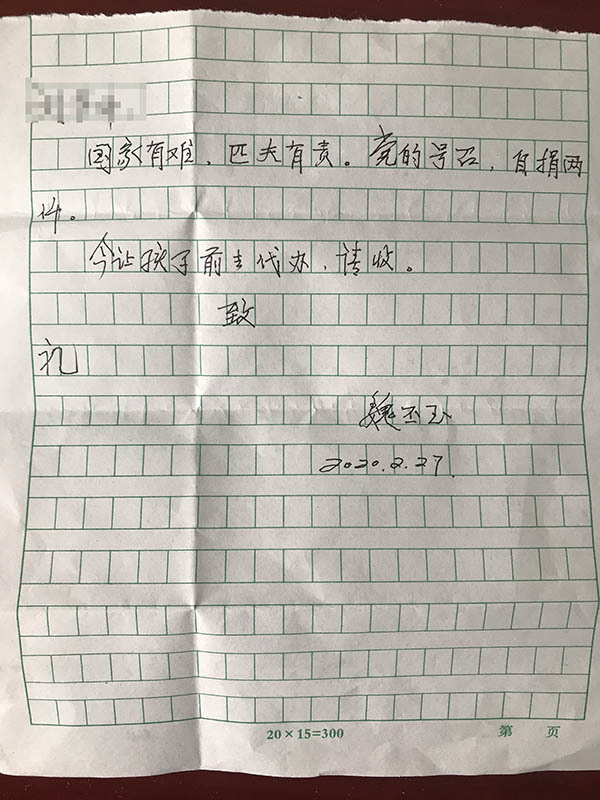 国家有难，匹夫有责。党的号召，自捐两
件。
今让孩子前去代办，请收。
致
礼
魏丕玉
2020.2.27.
20×15=300 第 页